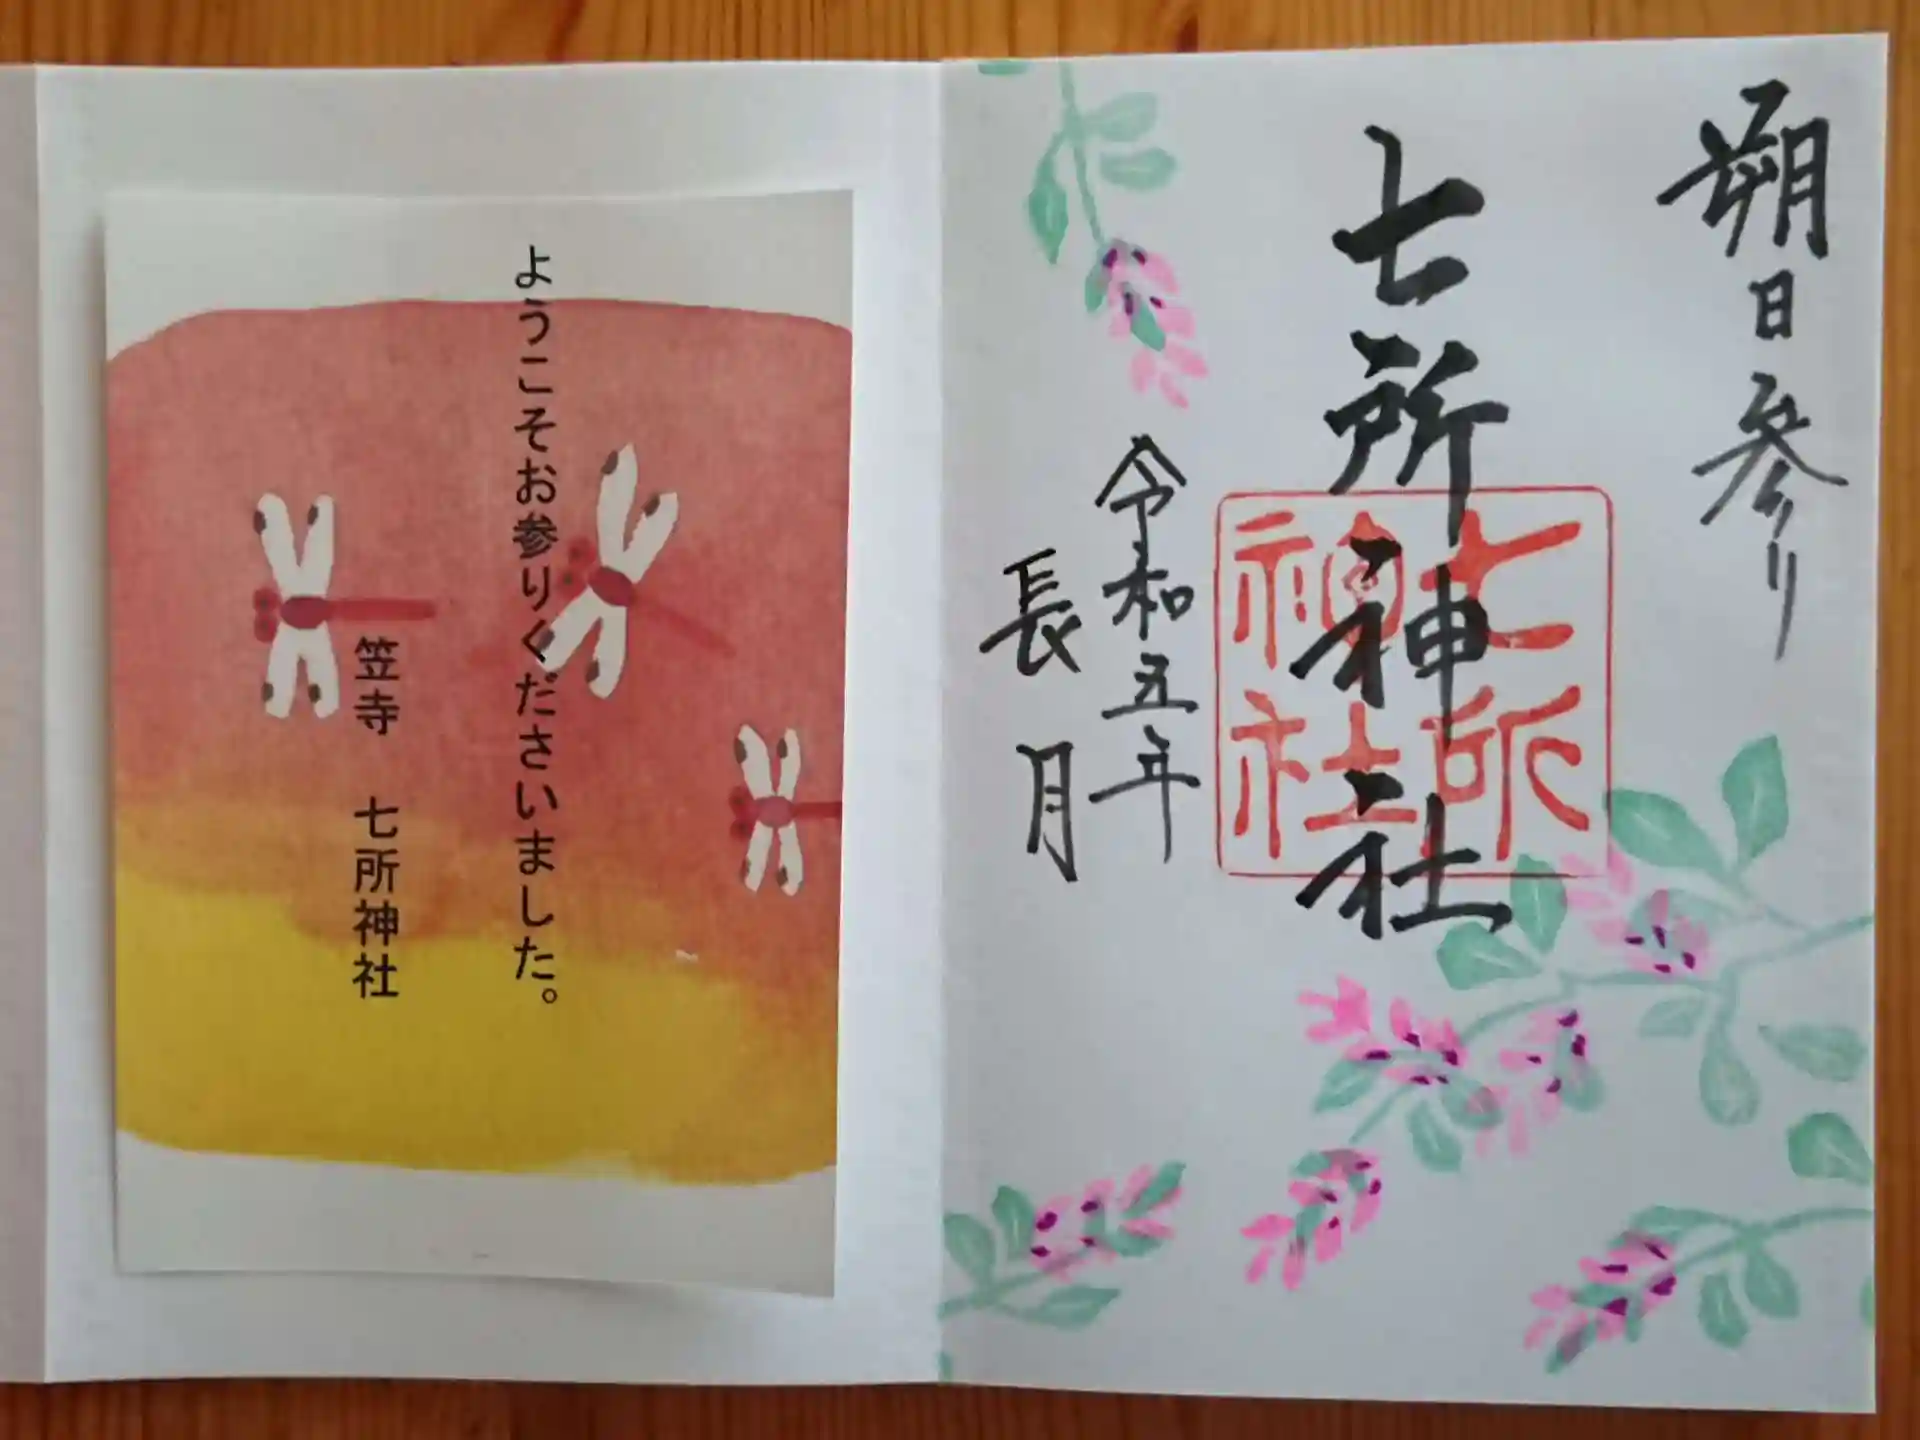 朔日参り
七所神社
七所神社
令和五年
長月
ようこそお参りくださいました。
笠寺　七所神社